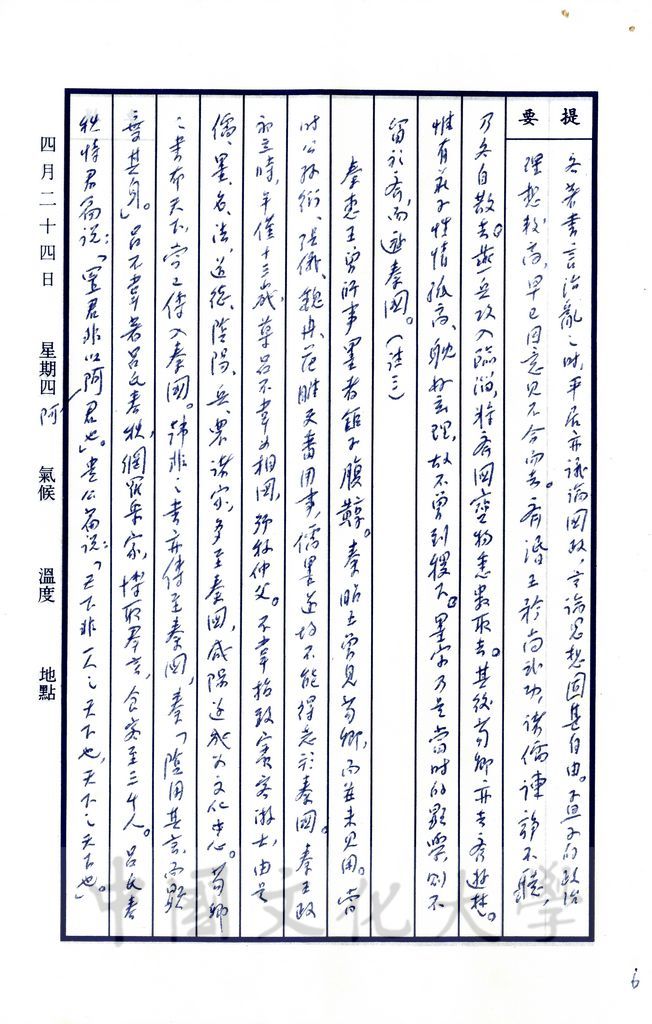 提要
各著書言治亂之時,平居亦議論國政,言論思想固甚自由。孟子的政治
理想較高,早已因意見不合而去。齊湣王矜尚武功,諸儒諫諍不聽,
乃各自散去。燕兵攻入臨淄,將齊國寶物悉數取去。其後荀卿亦去齊遊楚。
惟有莊子性情孤高,耽好玄理,故不曾到稷下。墨家乃是當時的顯學,則不
留於齊,而近秦國。(註三)
秦惠王曾師事墨者鉅子腹䵍。秦昭王曾見荀卿,而並未見用。當
時公孫衍、張儀、魏冉、范睢交番用事,儒墨遂均不能得志於秦國。秦王政
初立時,年僅十三歲,尊呂不韋為相國,號稱仲父。不韋招致賓客游士,由是
儒、墨、名、法、道德、陰陽、兵、農諸家,多至秦國,咸陽遂成為文化中心。荀卿
之書布天下,當已傳入秦國。韓非之書亦傳至秦國,秦「陰用其言,而顯
棄其身」。呂不韋著呂氏春秋,網羅眾家,博取群言,食客至三千人。呂氏春
秋恃君篇說:「置君非以阿君也」。貴公篇說:「天下非一人之天下也,天下之天下也」。
阿
四月二十四日 星期四 氣候 溫度 地點
中國文化大學
6